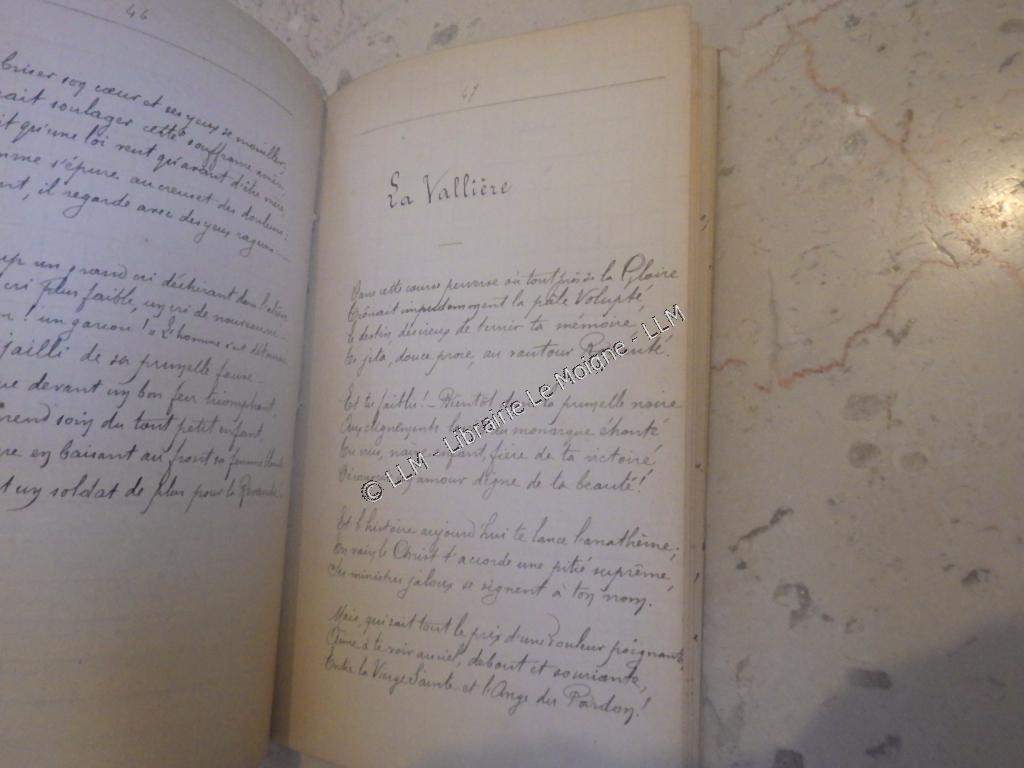 46
briser son cœur et ses yeux se mouiller,
soulager cette souffrance amère
qu'une loi veut qu'avant d'être mère
s'épure au creuset des douleurs.
il regarde avec des yeux
un grand cri déchirant dans
cri plus faible, un cri de
! un garçon ! » L'homme s'est détourné
jailli de sa prunelle fauve
devant un bon feu triomphant,
soin du tout petit enfant,
en baisant au front sa femme
un soldat de plus pour la Revanche !
47
La Vallière
Dans cette course perverse où tout près de la Gloire
Trônait impudemment la pâle Volupté,
Le destin, désireux de ternir ta mémoire,
Te jeta, douce proie, au vautour Royauté.
Et tu faillis ! – Bientôt ta prunelle noire
Aux clignements du monarque éhonté
Tu crus, naïve enfant, fière de ta victoire,
l'amour digne de la beauté !
Et l'histoire aujourd'hui te lance l'anathème ;
En vain le Christ t'accorde une pitié suprême,
Ses ministres jaloux se signent à ton nom.
Mais, qui sait tout le prix d'une douleur poignante,
Aime à te voir au ciel, debout et souriante,
Entre la Vierge Sainte et l'Ange du Pardon !
© LLM - Librairie Le Moigne - LLM